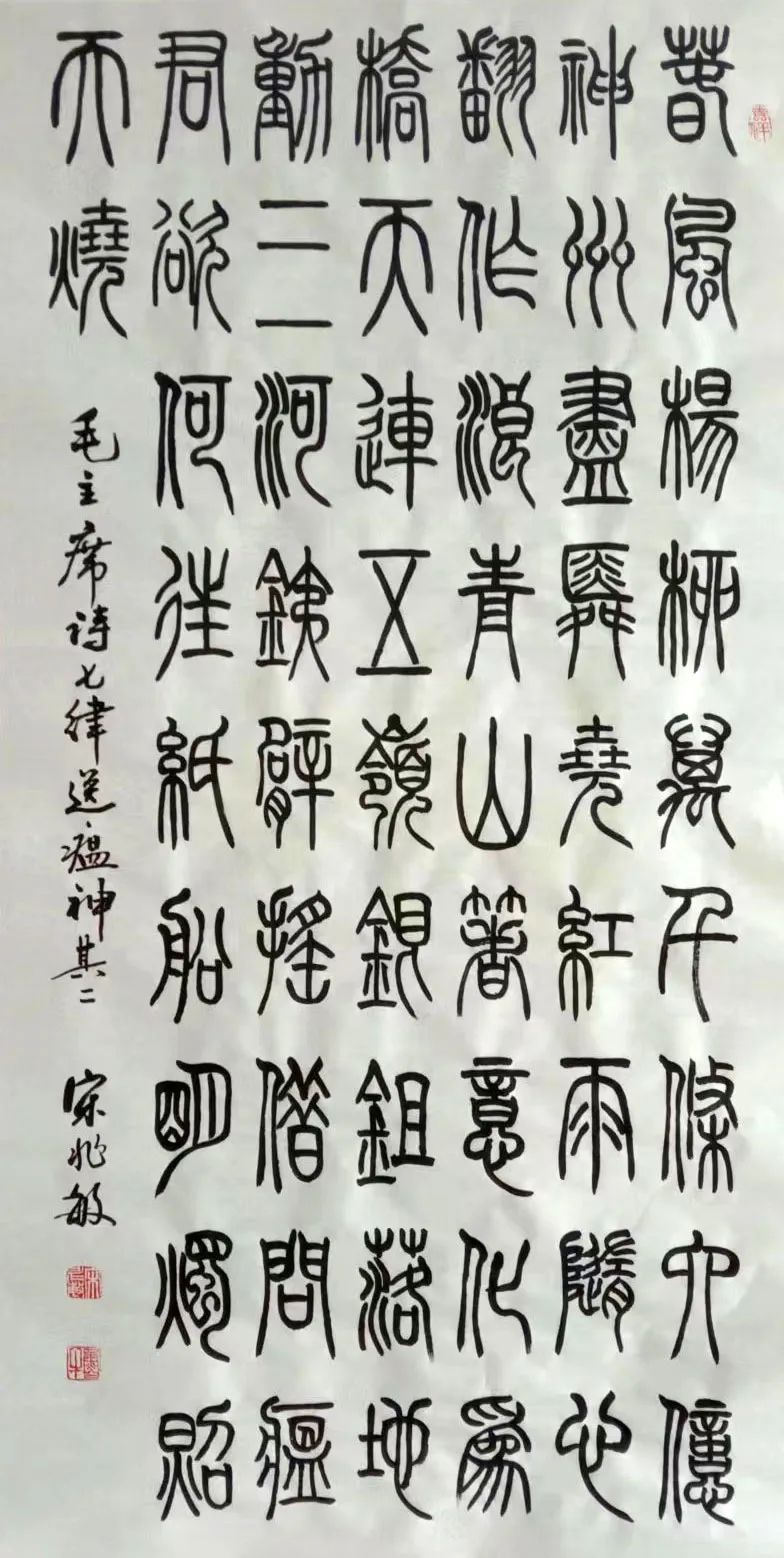 春風楊柳萬千條六億
神州盡舜堯紅雨隨心
翻作浪青山箸意化爲
橋天連五嶺銀鉏落地
動三河銕臂搖借問瘟
君欲何往紙船明燭照
天燒
毛主席詩七律送瘟神其二 宋兆敏